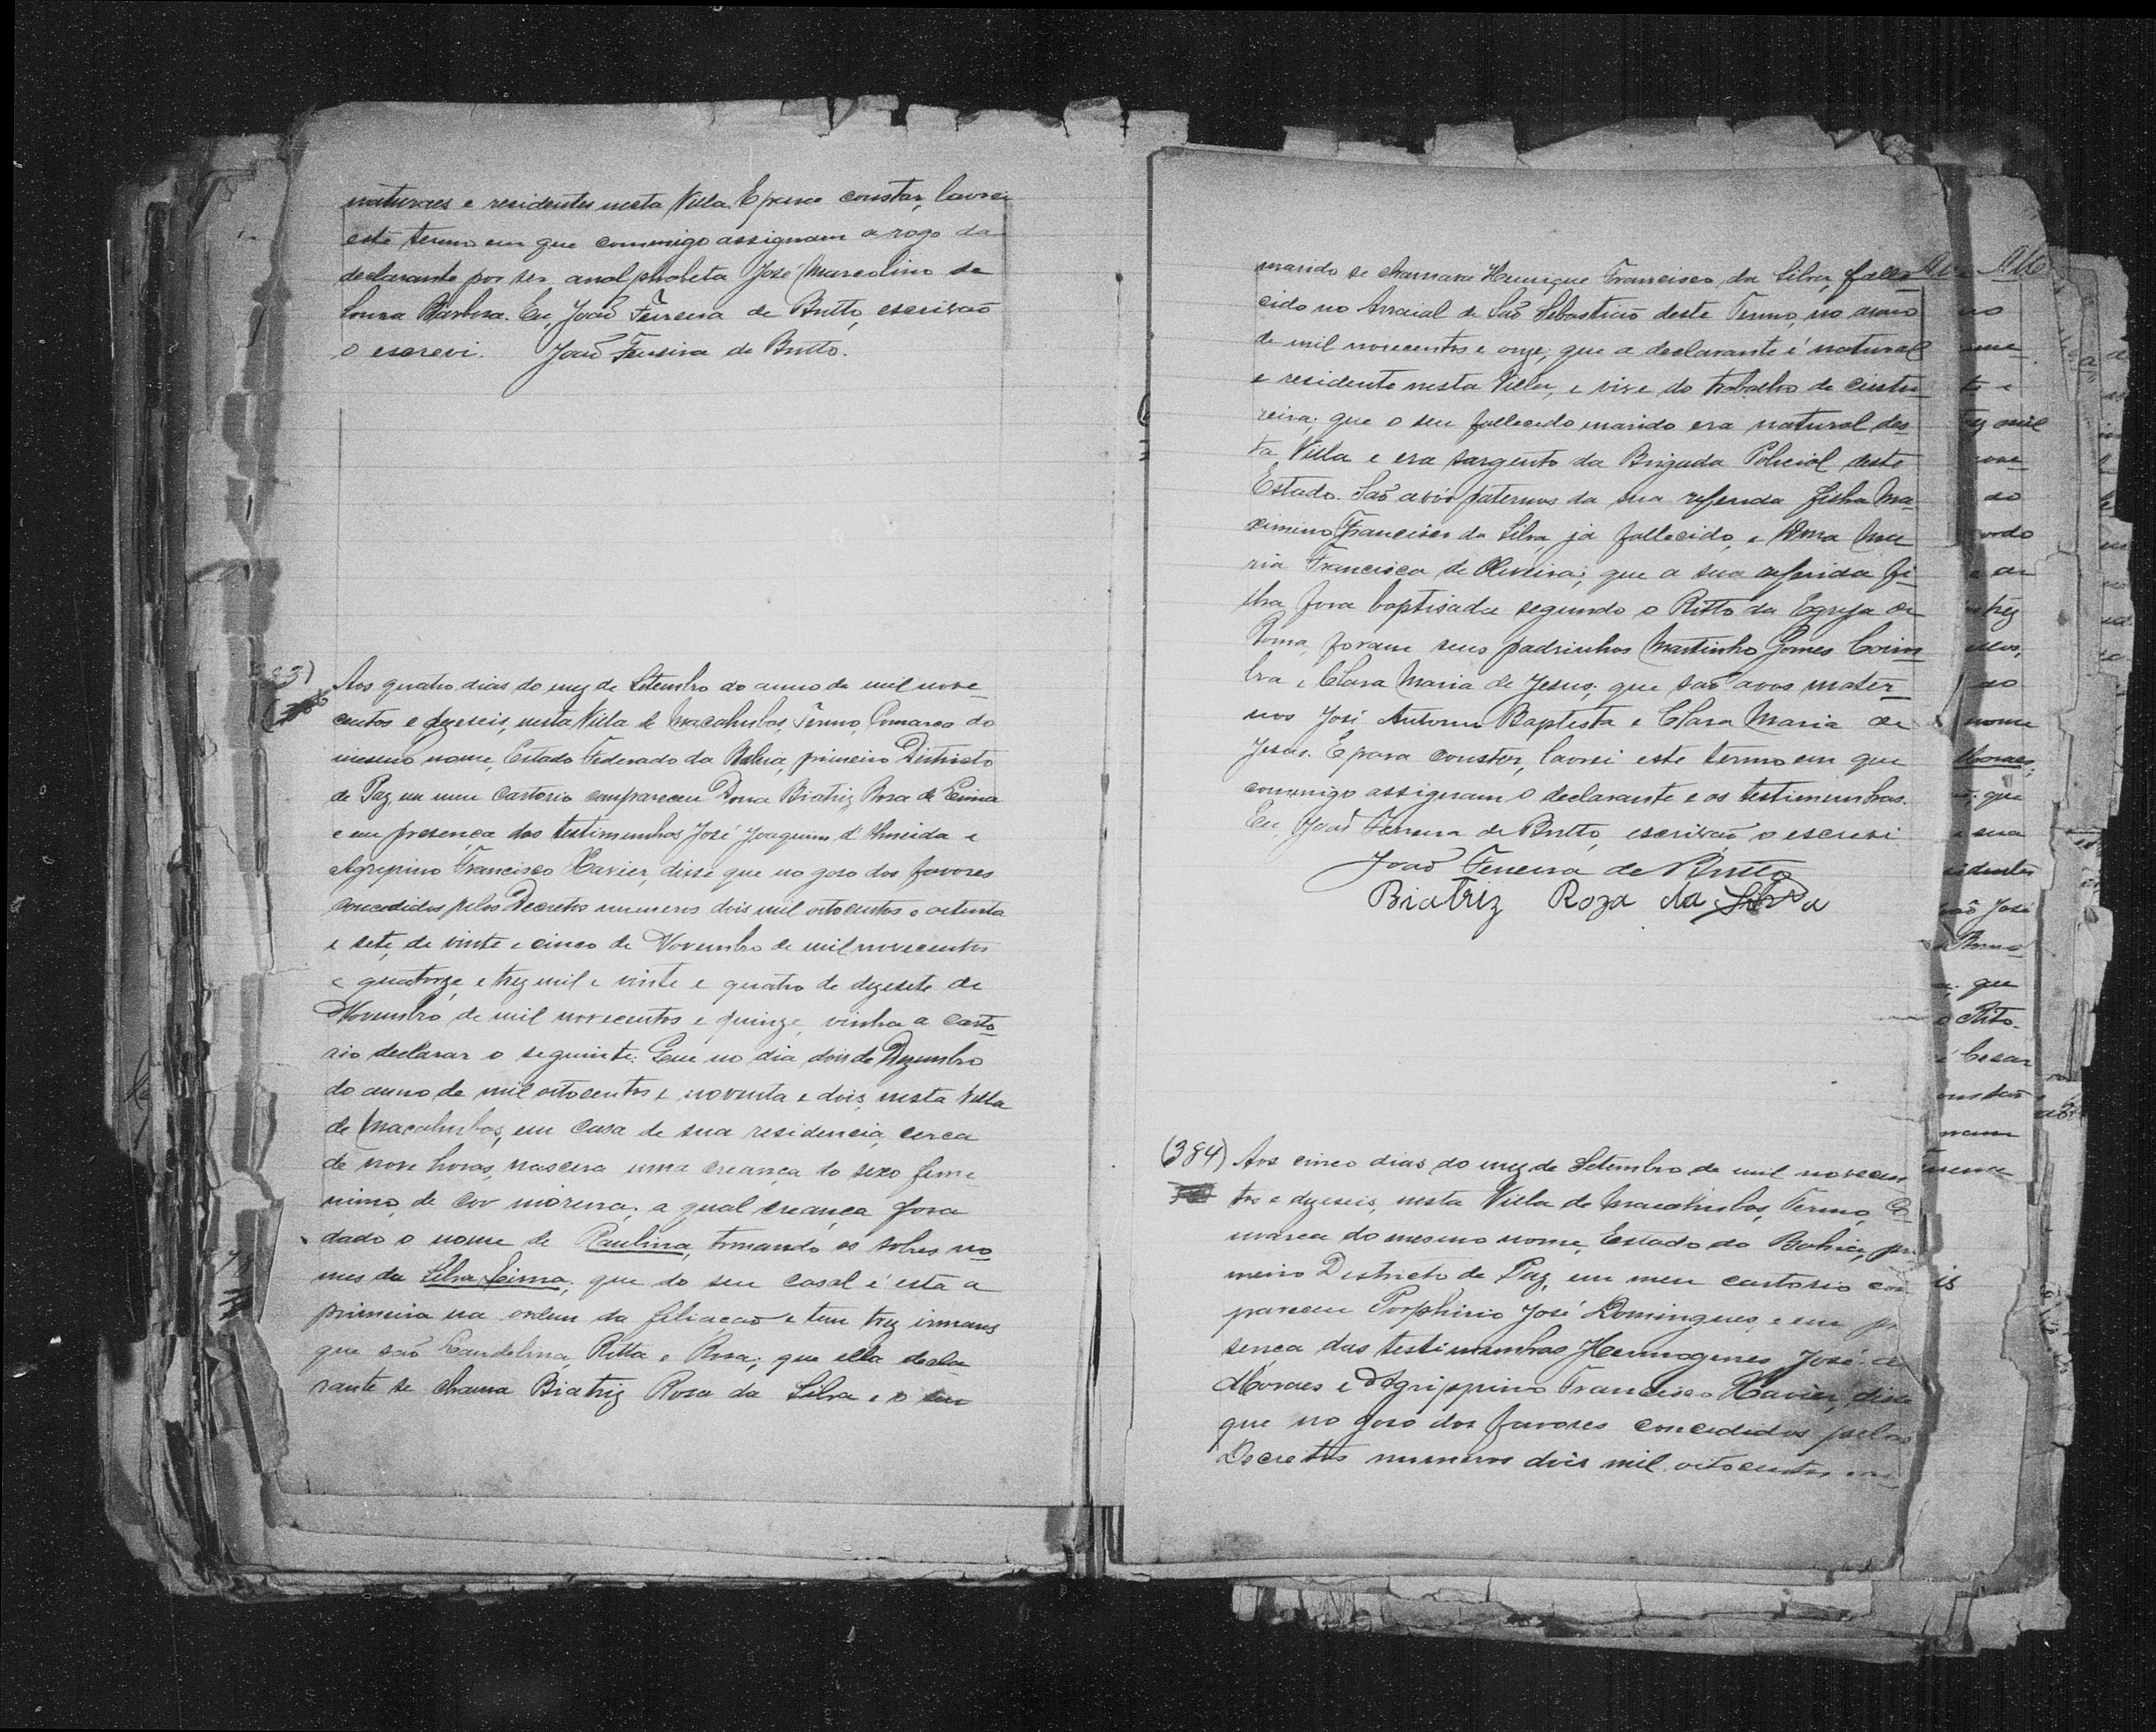 naturaes e residentes nesta Villa. E para constar, lavrei
este termo em que commigo assignam a rogo da
declarante por ser analphabeta José Marcolino de
Souza Barbosa. Eu, João Ferreira de Britto, escrivão
o escrevi. João Ferreira de Britto.
383)
Aos quatro dias do mez de Setembro do anno de mil nove
centos e dezeseis, nesta Villa de Macahubas, Termo, Comarca do
mesmo nome, Estado Federado da Bahia, primeiro Districto
de Paz em meu Cartorio compareceu Dona Biatriz Rosa de
e em presença das testimunhas José Joaquim d'Almeida e
Agripino Francisco Xavier, disse que no goso dos favores
concedidos pelos Decretos numeros dois mil oitocentos e oitenta
e sete, de vinte e cinco de Novembro de mil novecentos
e quatorze, e trez mil e vinte e quatro de dezesete de
Novembro de mil novecentos e quinze, vinha a Carto
rio declarar o seguinte: Que no dia dois de Dezembro
do anno de mil oitocentos e noventa e dois, nesta Villa
de Macahubas, em Casa de sua residencia, cerca
de nove horas, nascera uma creança do sexo feme
nimo, de cor morena; a qual creança fora
dado o nome de Paulina, tomando os sobres no
mes da Silva Leima; que do seu casal é esta a
primeira na ordem da filiação e tem trez irmans
que são Candelina, Ritta e Rosa; que ella decla
rante se chama Biatriz Rosa da Silva e o seu
marido se chamava Henrique Francisco da Silva, falle
cido no Arraial de São Sebastião deste Termo, no anno
de mil novecentos e onze; que a declarante é natural
e residente nesta Villa, e vive do trabalho de custu
reira; que o seu fallecido marido era natural des
ta Villa e era sargento da Brigada Policial deste
Estado. São avós paternos da sua referida filha Ma
cimino Francisco da Silva, já fallecido, e Dona Ma
ria Francisca de Oliveira; que a sua referida fi
lha fora baptisada segundo o Ritto da Egreja de
Roma, foram seus padrinhos Martinho Gomes Coim
bra e Clara Maria de Jesus; que são avos mater
nos José Antonio Baptista e Clara Maria de
Jesus. E para constar, lavrei este termo em que
commigo assignam o declarante e as testimunhas.
Eu, João Ferreira de Britto, escrivão o escrevi.
João Ferreira de Britto
Biatriz Roza da Silva
(384) Aos cinco dias do mez de Setembro de mil novecen
tos e dezeseis, nesta Villa de Macahubas, Termo, Co
marca do mesmo nome, Estado da Bahia, pri
meiro Districto de Paz, em meu cartorio com
pareceu Porphirio José Domingues, e em pr
sença das testimunhas Hermogenes José de
Moraes e Agrippino Francisco Xavier, disse
que no goso dos favores concedidos pelos
Decrettos numeros dois mil oitocentos